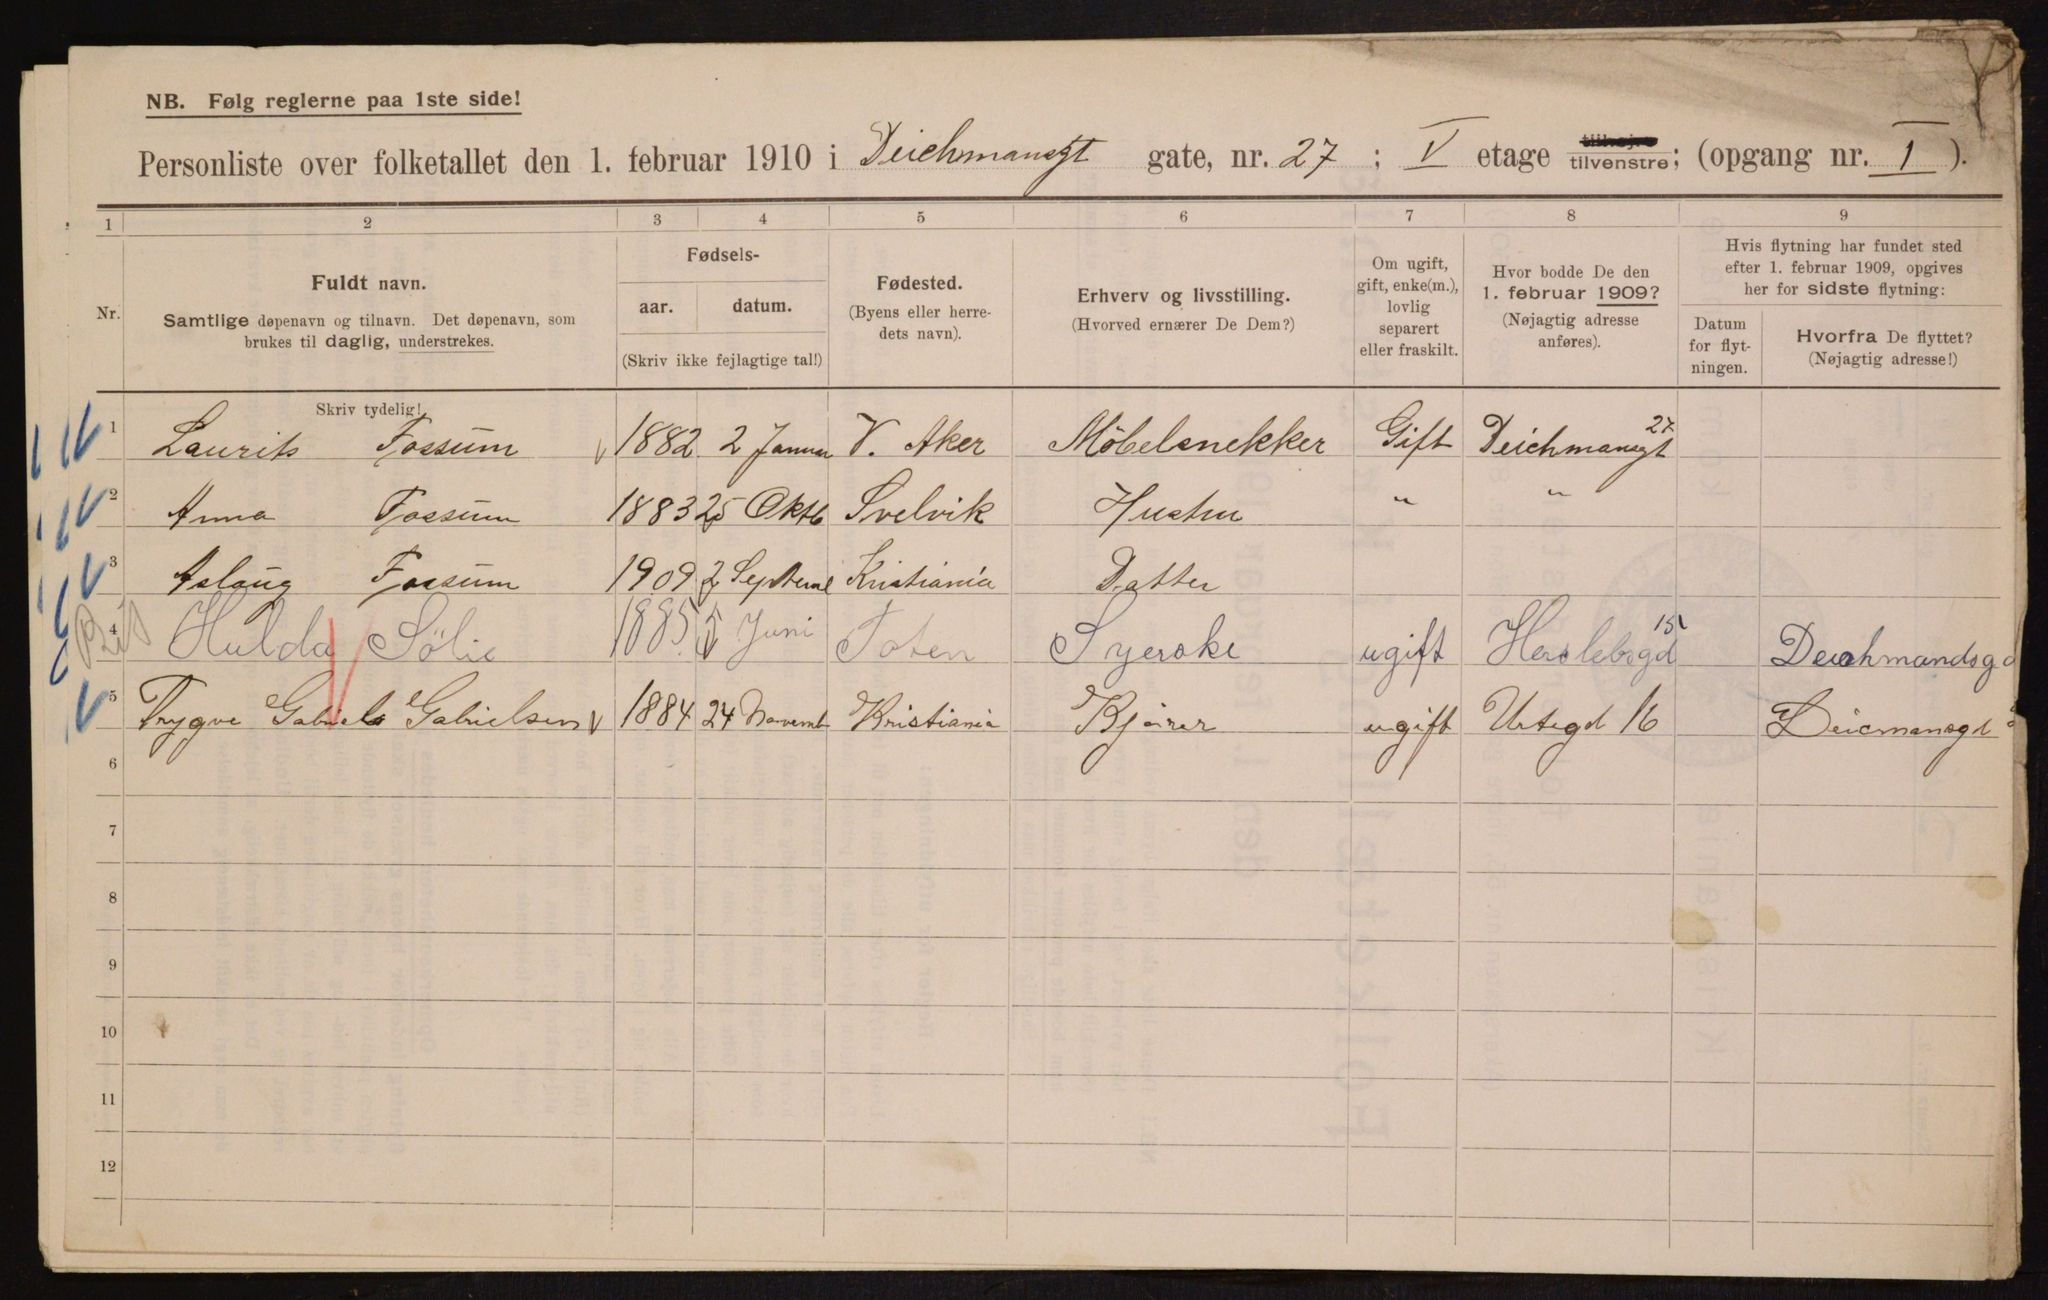 NB. Følg reglerne paa 1ste side!
Personliste over folketallet den 1. februar 1910 i Deichmansgt gate, nr. 27 ; V etage tilhøjre tilvenstre; (opgang nr. I ).
1 2 3 4 5 6 7 8 9
Nr.
Fuldt navn.
Samtlige døpenavn og tilnavn. Det døpenavn, som
brukes til daglig, understrekes.
Fødsels-
aar. datum.
(Skriv ikke fejlagtige tal!)
Fødested.
(Byens eller herre-
dets navn).
Erhverv og livsstilling.
(Hvorved ernærer De Dem?)
Om ugift,
gift, enke(m.),
lovlig
separert
eller fraskilt.
Hvor bodde De den
1. februar 1909?
(Nøjagtig adresse
anføres).
Hvis flytning har fundet sted
efter 1. februar 1909, opgives
her for sidste flytning:
Datum
for flyt-
ningen.
Hvorfra De flyttet?
(Nøjagtig adresse!)
Skriv tydelig!
1 Laurits Fossum 1882 2 Januar V. Aker Möbelsnekker Gift Deichmansgt 27
2 Anna Fossum 1883 25 Oktb Svelvik Hustru " "
3 Aslaug Fossum 1909 2 Kristiania Datter
4 Hulda Sölie 1885 5 Juni Toten Syerske ugift Herslebsgd 15 Deichmandsgd
5 Trygve Gabriels Gabrielsen 1884 24 Novemb Kristiania Kjörer ugift Urtegd 16 Deicmansgd
6
7
8
9
10
11
12